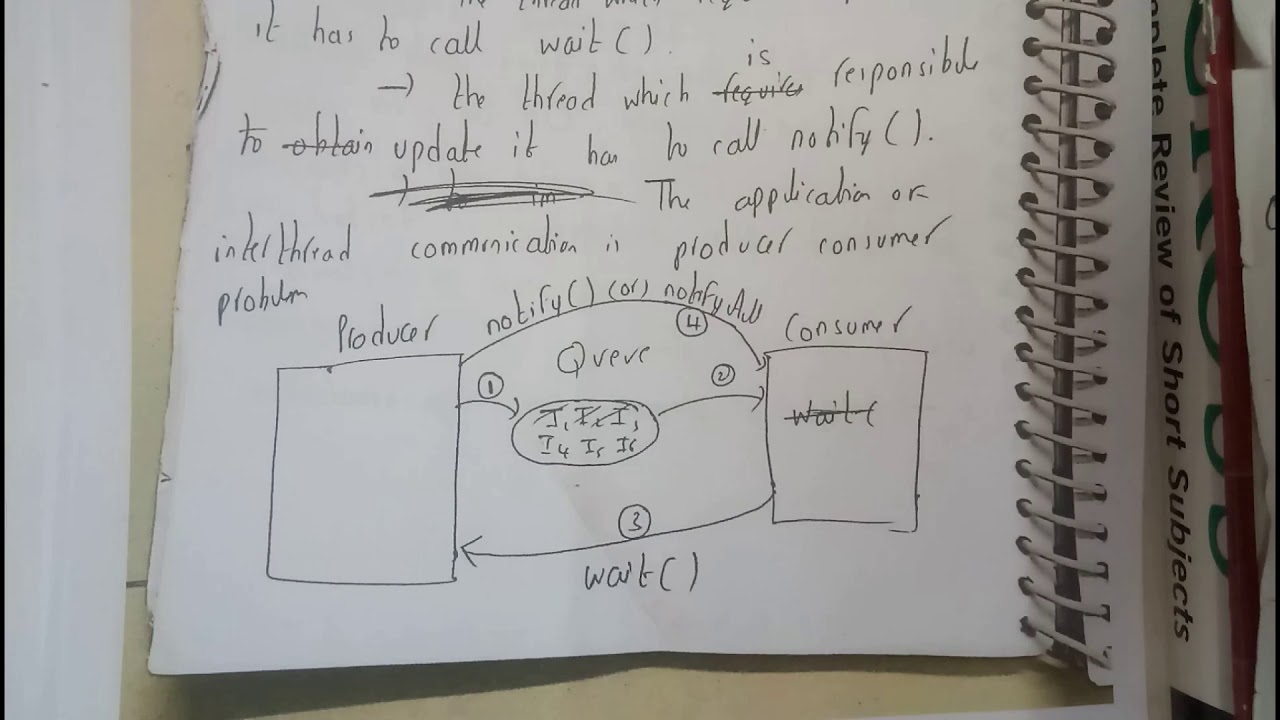 The thread which
it has to call wait().
→ the thread which is r̶e̶q̶u̶i̶r̶e̶s̶ responsible
to o̶b̶t̶a̶i̶n̶ update it has to call notify().
The application or
interthread communication is producer consumer
problem
Producer
notify() (or) notifyAll
④
Consumer
Queue
①
②
I₁ I₂ I₃
I₄ I₅ I₆
w̶a̶i̶t̶(̶
③
wait()
plete Review of Short Subjects